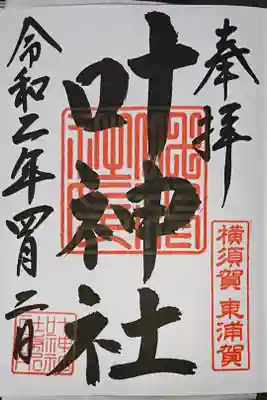 奉拝
横須賀 東浦賀
叶神社
令和二年四月二日